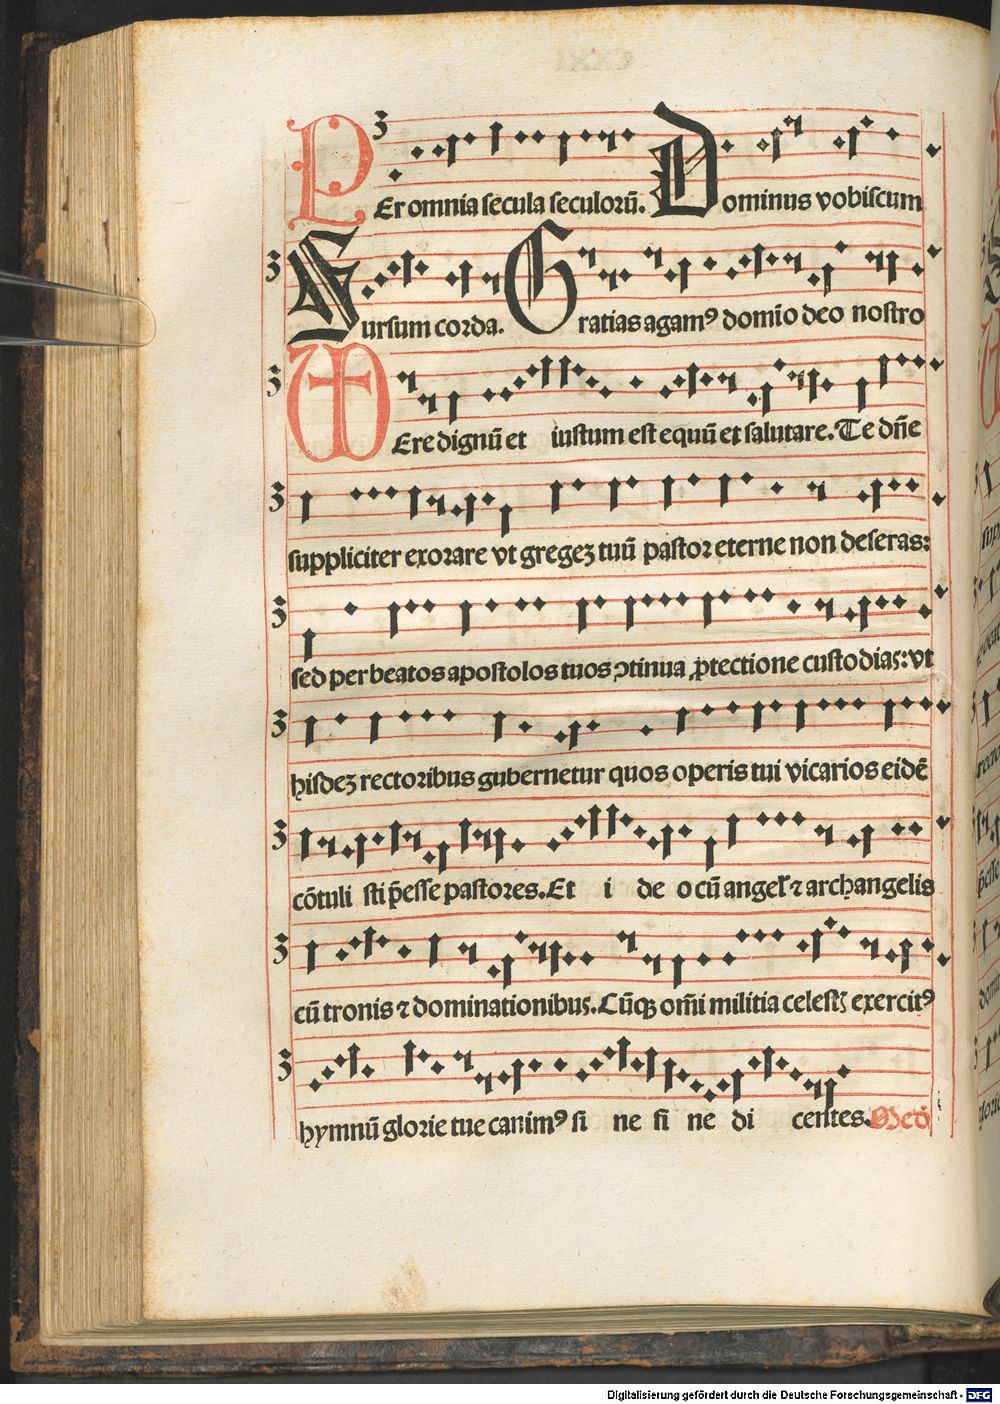 PEr omnia secula seculoꝛū. Dominus vobiscum
Sursum coꝛda. Gratias agamꝰ domīo deo nostro
VEre dignū et iustum est equū et salutare. Te dn̄e
suppliciter exoꝛare vt gregeꝫ tuū pastoꝛ eterne non deseras:
sed per beatos apostolos tuos ꝯtinua ꝓtectione custodias: vt
hisdeꝫ rectoꝛibus gubernetur quos operis tui vicarios eidē
cōtuli sti p̄esse pastoꝛes. Et i de o cū angel' ⁊ archangelis
cū tronis ⁊ dominationibus. Cūqꝫ om̄i militia celestꝭ exercitꝰ
hymnū gloꝛie tue canimꝰ si ne fi ne di centes.
Digitalisierung gefördert durch die Deutsche Forschungsgemeinschaft - DFG